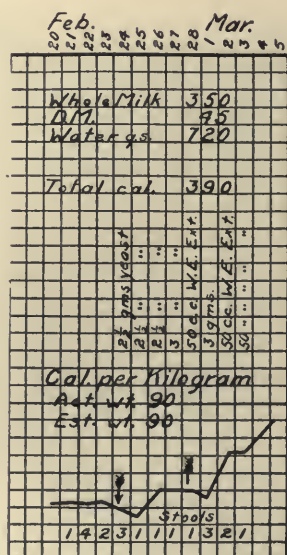 Feb. Mar.
20 21 22 23 24 25 26 27 28 1 2 3 4 5
Whole Milk 350
D.M. 45
Water qs. 720
Total cal. 390
2½ gms yeast
2½ " "
2½ " "
3 " "
50 c.c. W.E. Ext.
3 gms.
50 c.c. W.E. Ext.
50 " " " "
Cal. per Kilogram
Act. wt. 90
Est. wt. 90
Stools
1 4 2 3 1 1 1 1 3 2 1